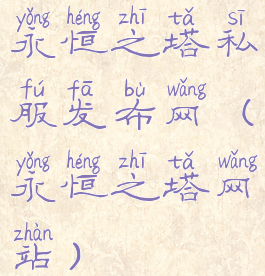 yǒng héng zhī tǎ sī
永恒之塔私
fú fā bù wǎng
服发布网(
yǒng héng zhī tǎ wǎng
永恒之塔网
zhàn
站)